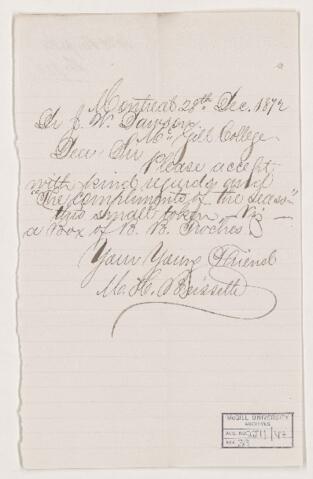 Montreal 28th Dec. 1872
Dr J. W. Dawson
Mc Gill College
Dear Sir
Please accept
with kind regards and
"The compliments of the season"
this small token - Viz -
a Box of B. B. Troches
Your Young Friend
M. H. Brissette
McGILL UNIVERSITY
ARCHIVES
ACC. NO.
REF.